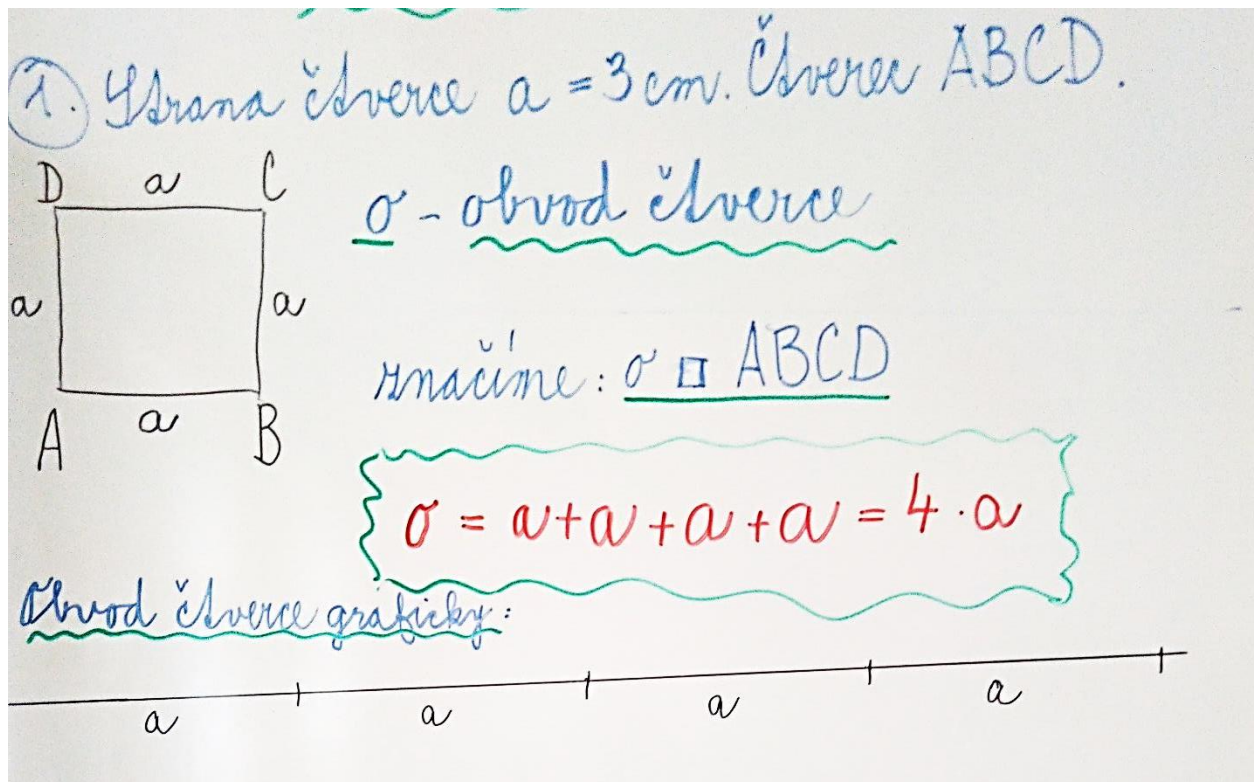 1. Strana čtverce a = 3 cm. Čtverec ABCD.
D a C
o - obvod čtverce
a a
značíme: o □ ABCD
A a B
o = a + a + a + a = 4 · a
Obvod čtverce graficky:
a a a a